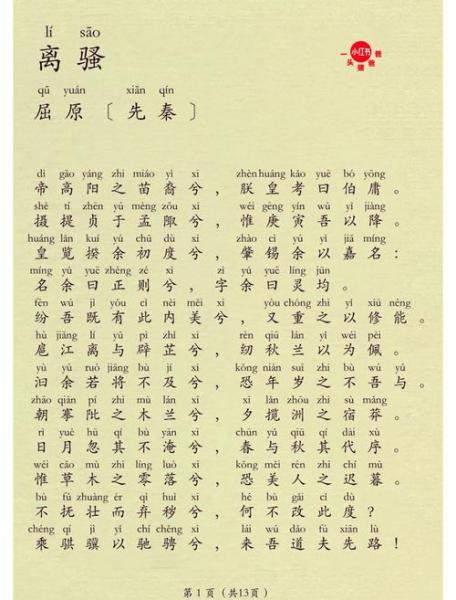 lí sāo
离骚
小红书
一头猪爸爸
qū yuán xiān qín
屈原〔先秦〕
dì gāo yáng zhī miáo yì xī zhèn huáng kǎo yuē bó yōng
帝高阳之苗裔兮，朕皇考曰伯庸。
shè tí zhēn yú mèng zōu xī wéi gēng yín wú yǐ jiàng
摄提贞于孟陬兮，惟庚寅吾以降。
huáng lǎn kuí yú chū dù xī zhào cì yú yǐ jiā míng
皇览揆余初度兮，肇锡余以嘉名：
míng yú yuē zhèng zé xī zì yú yuē líng jūn
名余曰正则兮，字余曰灵均。
fēn wú jì yǒu cǐ nèi měi xī yòu chóng zhī yǐ xiū néng
纷吾既有此内美兮，又重之以修能。
hù jiāng lí yǔ pì zhǐ xī rèn qiū lán yǐ wéi pèi
扈江离与辟芷兮，纫秋兰以为佩。
yù yú ruò jiāng bù jí xī kǒng nián suì zhī bù wú yǔ
汩余若将不及兮，恐年岁之不吾与。
zhāo qiān pí zhī mù lán xī xī lǎn zhōu zhī sù mǎng
朝搴阰之木兰兮，夕揽洲之宿莽。
rì yuè hū qí bù yān xī chūn yǔ qiū qí dài xù
日月忽其不淹兮，春与秋其代序。
wéi cǎo mù zhī líng luò xī kǒng měi rén zhī chí mù
惟草木之零落兮，恐美人之迟暮。
bù fǔ zhuàng ér qì huì xī hé bù gǎi cǐ dù
不抚壮而弃秽兮，何不改此度？
chéng qí jì yǐ chí chěng xī lái wú dǎo fū xiān lù
乘骐骥以驰骋兮，来吾道夫先路！
第1页（共13页）